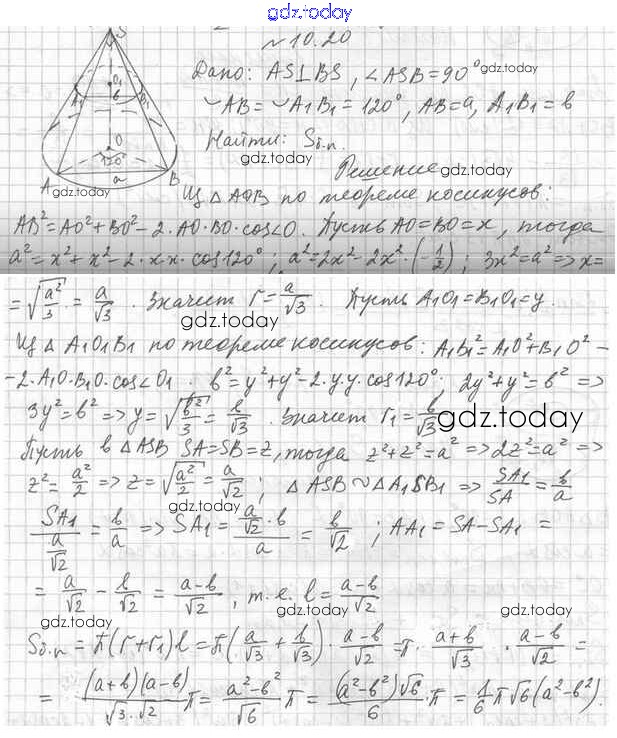 gdz.today
№ 10.20
Дано: AS⊥BS, ∠ASB=90° gdz.today
◡AB=◡A₁B₁=120°, AB=a, A₁B₁=b
Найти: Sб.п.
gdz.today
Решение
gdz.today
Из △AOB по теореме косинусов:
AB²=AO²+BO²-2·AO·BO·cos∠O. Пусть AO=BO=x, тогда
a²=x²+x²-2·x·x·cos120°; a²=2x²-2x²·(-1/2); 3x²=a²=>x=
=√(a²/3)=a/√3. Значит r=a/√3. Пусть A₁O₁=B₁O₁=y.
gdz.today
Из △A₁O₁B₁ по теореме косинусов: A₁B₁²=A₁O²+B₁O²-
-2·A₁O·B₁O·cos∠O₁. b²=y²+y²-2·y·y·cos120°; 2y²+y²=b² =>
3y²=b² => y=√(b²/3)=b/√3. Значит r₁=b/√3 gdz.today
Пусть в △ASB SA=SB=z, тогда z²+z²=a² => 2z²=a² =>
z²=a²/2 => z=√(a²/2)=a/√2; △ASB∾△A₁SB₁ => SA₁/SA=b/a
gdz.today
SA₁/(a/√2)=b/a => SA₁=(a/√2·b)/a=b/√2; AA₁=SA-SA₁=
=a/√2-b/√2=(a-b)/√2, т.е. l=(a-b)/√2
gdz.today
Sб.п=π(r+r₁)l=π(a/√3+b/√3)·(a-b)/√2=π·(a+b)/√3·(a-b)/√2=
=(a+b)(a-b)/(√3·√2)π=(a²-b²)/√6 π=(a²-b²)√6/6·π=1/6π√6(a²-b²).
gdz.today
S
O₁
A₁
B₁
b
O
120°
A
a
B
gdz.today